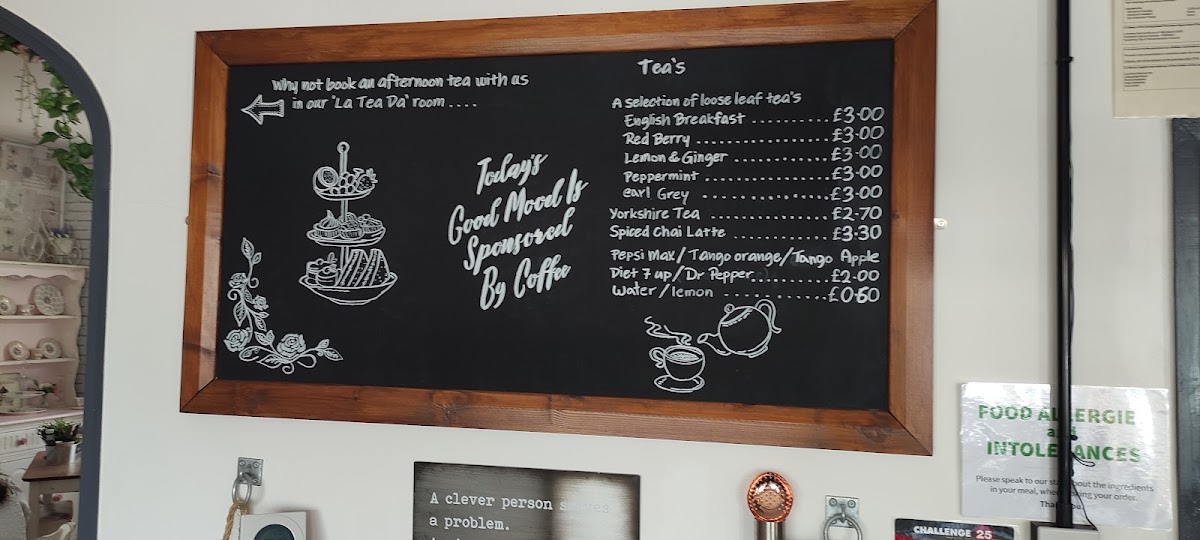 Why not book an afternoon tea with us
in our 'La Tea Da' room ....
Today's
Good Mood Is
Sponsored
By Coffee
Tea's
A selection of loose leaf tea's
English Breakfast .......... £3.00
Red Berry .................. £3.00
Lemon & Ginger ............ £3.00
Peppermint ................. £3.00
earl Grey .................. £3.00
Yorkshire Tea ............... £2.70
Spiced Chai Latte ............ £3.30
Pepsi Max/Tango orange/Tango Apple
Diet 7 up/Dr Pepper.......... £2.00
Water/lemon ............... £0.60
FOOD ALLERGIE
and
INTOLERANCES
Please speak to our staff about the ingredients
in your meal, when making your order.
Thank you
A clever person solves
a problem.
CHALLENGE 25